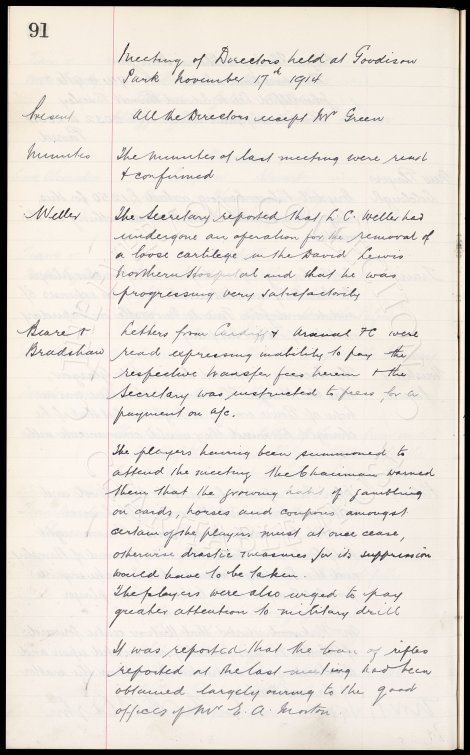 91
Meeting of Directors held at Goodison
Park November 17th 1914
Present All the Directors except Mr Green
Minutes The minutes of last meeting were read
& confirmed
Weller The Secretary reported that L. C. Weller had
undergone an operation for the removal of
a loose cartilege in the David Lewis
Northern Hospital and that he was
progressing very satisfactorily
Beare & Letters from Cardiff & Arsenal FC were
Bradshaw read expressing inability to pay the
respective transfer fees herein & the
Secretary was instructed to press for a
payment on a/c.
The players having been summoned to
attend the meeting the Chairman warned
them that the growing habit of gambling
on cards, horses and coupons amongst
certain of the players must at once cease,
otherwise drastic measures for its suppression
would have to be taken.
The players were also urged to pay
greater attention to military drill
It was reported that the loan of rifles
reported at the last meeting had been
obtained largely owing to the good
offices of Mr E. A. Morton